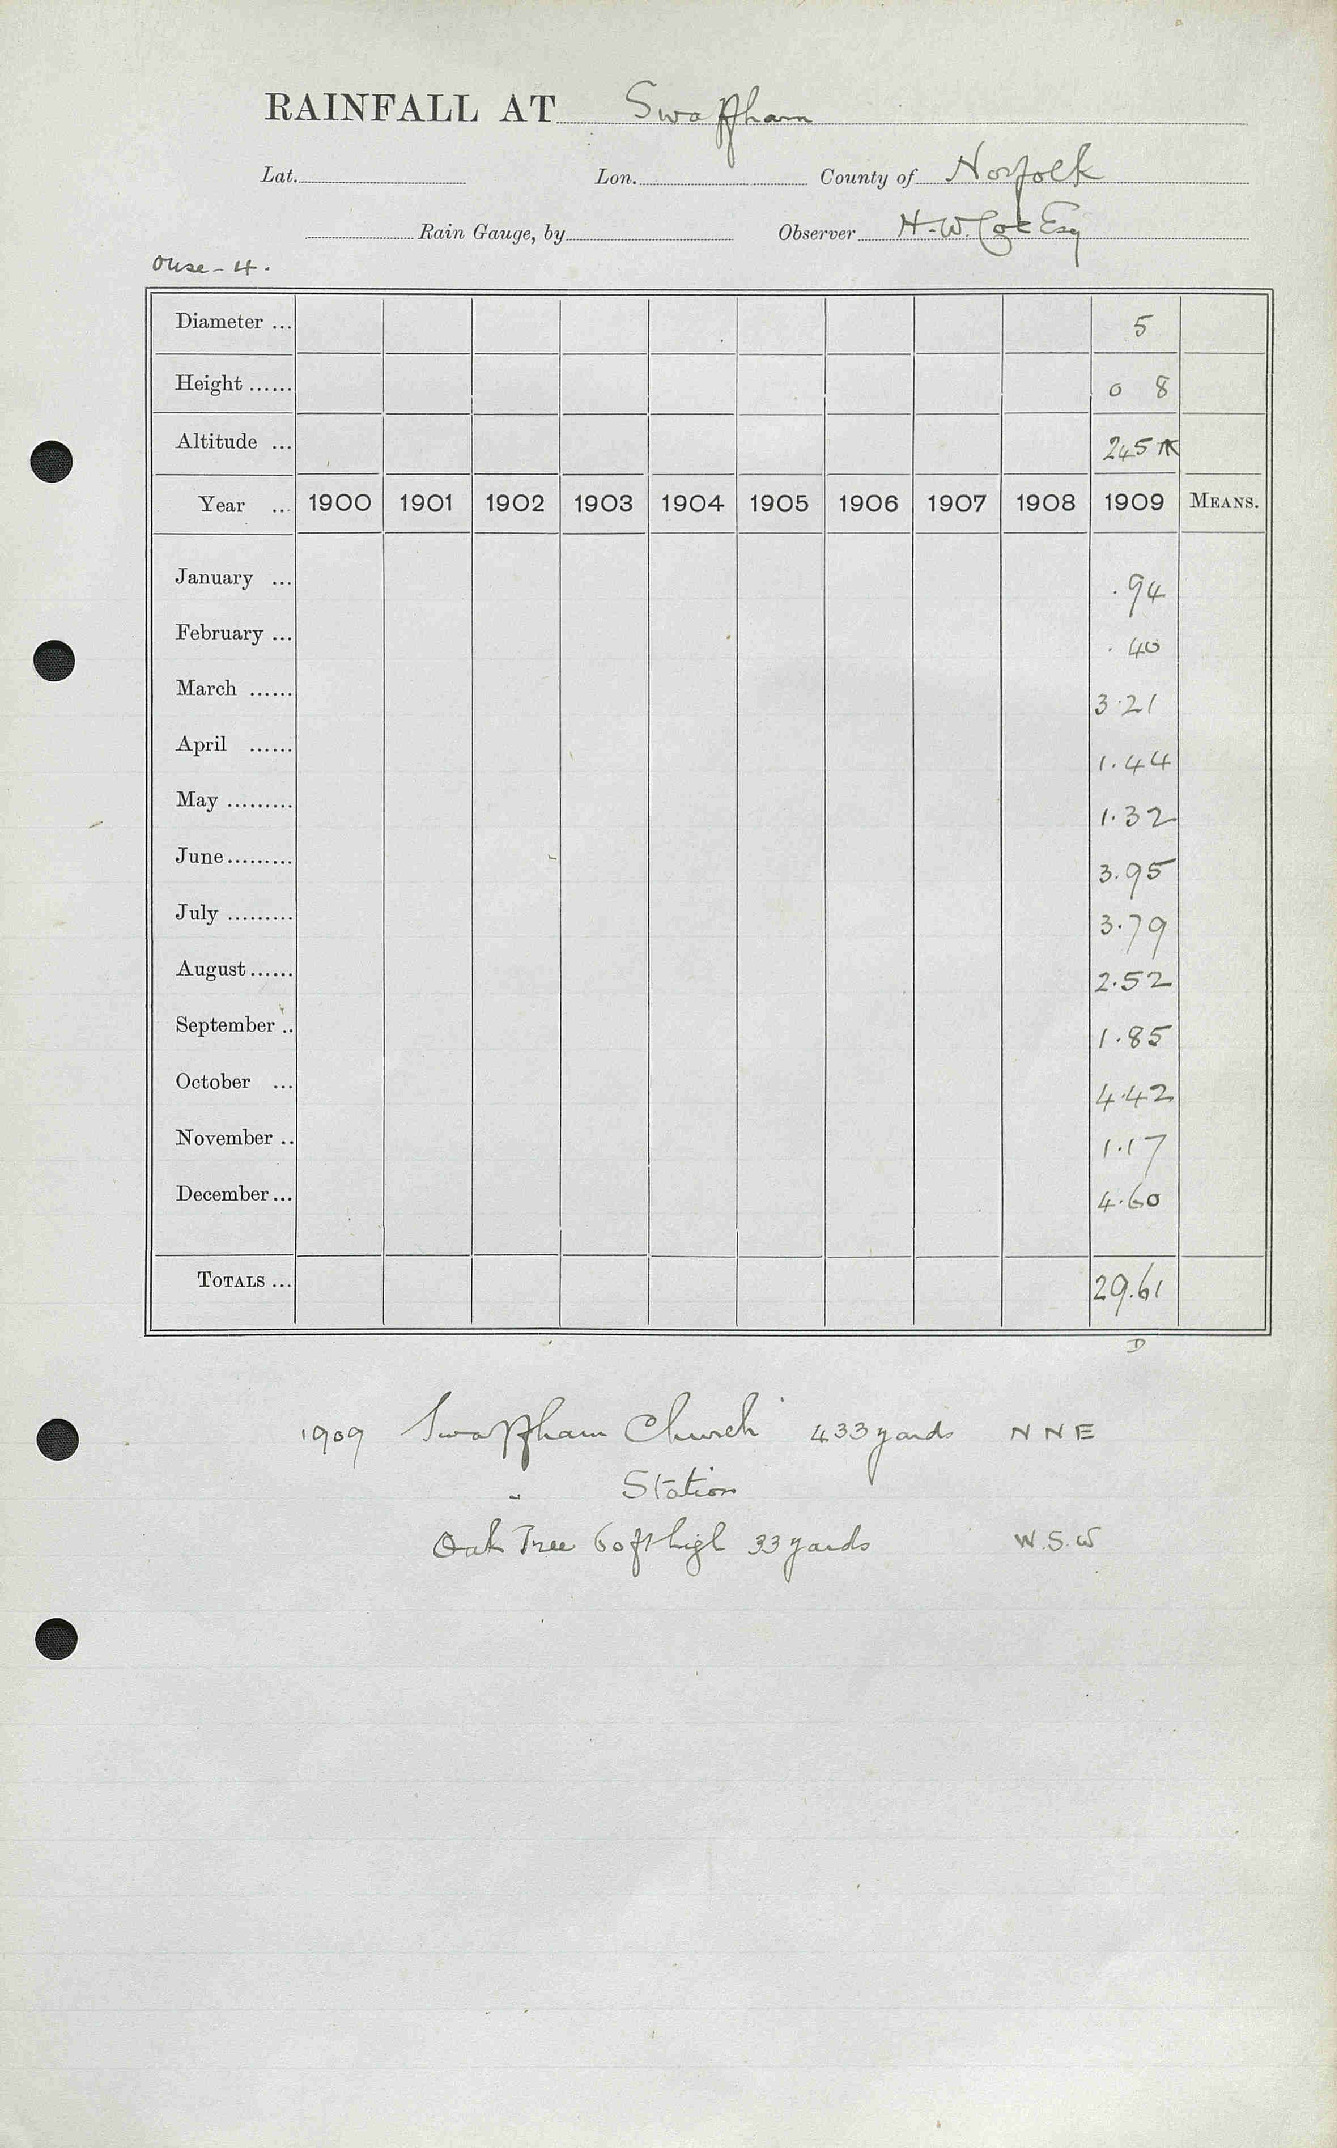 RAINFALL AT Swaffham
Lat. Lon. County of Norfolk
Rain Gauge, by Observer H. W. Esq
Ouse - 4.
Diameter ... 5
Height ...... 0 8
Altitude ... 245 ft
Year ... 1900 1901 1902 1903 1904 1905 1906 1907 1908 1909 MEANS.
January ... .94
February ... .40
March ...... 3.21
April ...... 1.44
May ......... 1.32
June......... 3.95
July ......... 3.79
August...... 2.52
September .. 1.85
October ... 4.42
November .. 1.17
December... 4.60
TOTALS ... 29.61
D
1909 Swaffham Church 433 yards N N E
" Station
Oak Tree 60 ft high 33 yards W.S.W